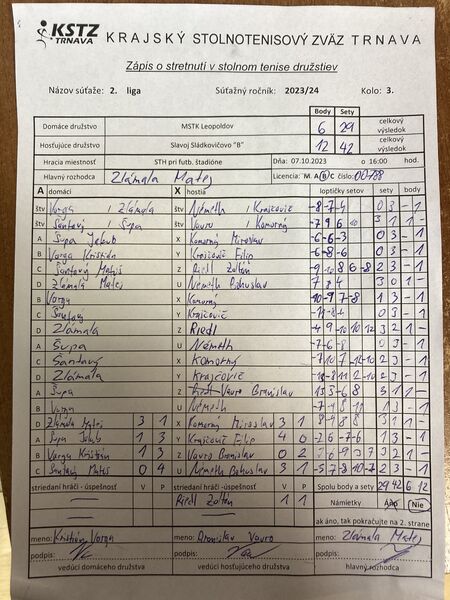 KSTZ
TRNAVA
KRAJSKÝ STOLNOTENISOVÝ ZVÄZ TRNAVA
Zápis o stretnutí v stolnom tenise družstiev
Názov súťaže: 2. liga Súťažný ročník: 2023/24 Kolo: 3.
Body Sety
Domáce družstvo MSTK Leopoldov 6 29 celkový výsledok
Hosťujúce družstvo Slavoj Sládkovičovo "B" 12 42 celkový výsledok
Hracia miestnosť STH pri futb. štadióne Dňa: 07.10.2023 o 16:00 hod.
Hlavný rozhodca Zlámala Matej Licencia: M A B C číslo: 00788
A domáci X hostia loptičky setov sety body
štv Varga / Zlámala štv Németh / Krajčovič 0 3 - 1
štv Šantavý / Šupa štv Vavro / Komorný 3 1 1 -
A Šupa Jakub X Komorný Miroslav -6 -6 -3 0 3 - 1
B Varga Kristián Y Krajčovič Filip -6 -8 -6 0 3 - 1
C Šantavý Matúš Z Riedl Zoltán 2 3 - 1
D Zlámala Matej U Németh Bohuslav 7 8 4 3 0 1 -
B Varga X Komorný -10 -9 7 -8 1 3 - 1
C Šantavý Y Krajčovič 0 3 - 1
D Zlámala Z Riedl -4 9 -10 10 12 3 2 1 -
A Šupa U Németh -7 -6 -8 0 3 - 1
C Šantavý X Komorný 2 3 - 1
D Zlámala Y Krajčovič 2 3 - 1
A Šupa Z Riedl Vavro Branislav 3 1 1 -
B Varga U Németh 1 3 - 1
D Zlámala Matej 3 1 X Komorný Miroslav 3 1 3 1 1 -
A Šupa Jakub 1 3 Y Krajčovič Filip 4 0 1 3 - 1
B Varga Kristián 1 3 Z Vavro Branislav 0 2 3 2 1 -
C Šantavý Matúš 0 4 U Németh Bohuslav 3 1 -5 7 -8 10 -7 2 3 - 1
striedaní hráči - úspešnosť V P striedaní hráči - úspešnosť V P Spolu body a sety 29 42 6 12
Riedl Zoltán 1 1 Námietky Áno Nie
ak áno, tak pokračujte na 2. strane
meno: Kristián Varga meno: Branislav Vavro meno: Zlámala Matej
podpis: podpis: podpis:
vedúci domáceho družstva vedúci hosťujúceho družstva hlavný rozhodca